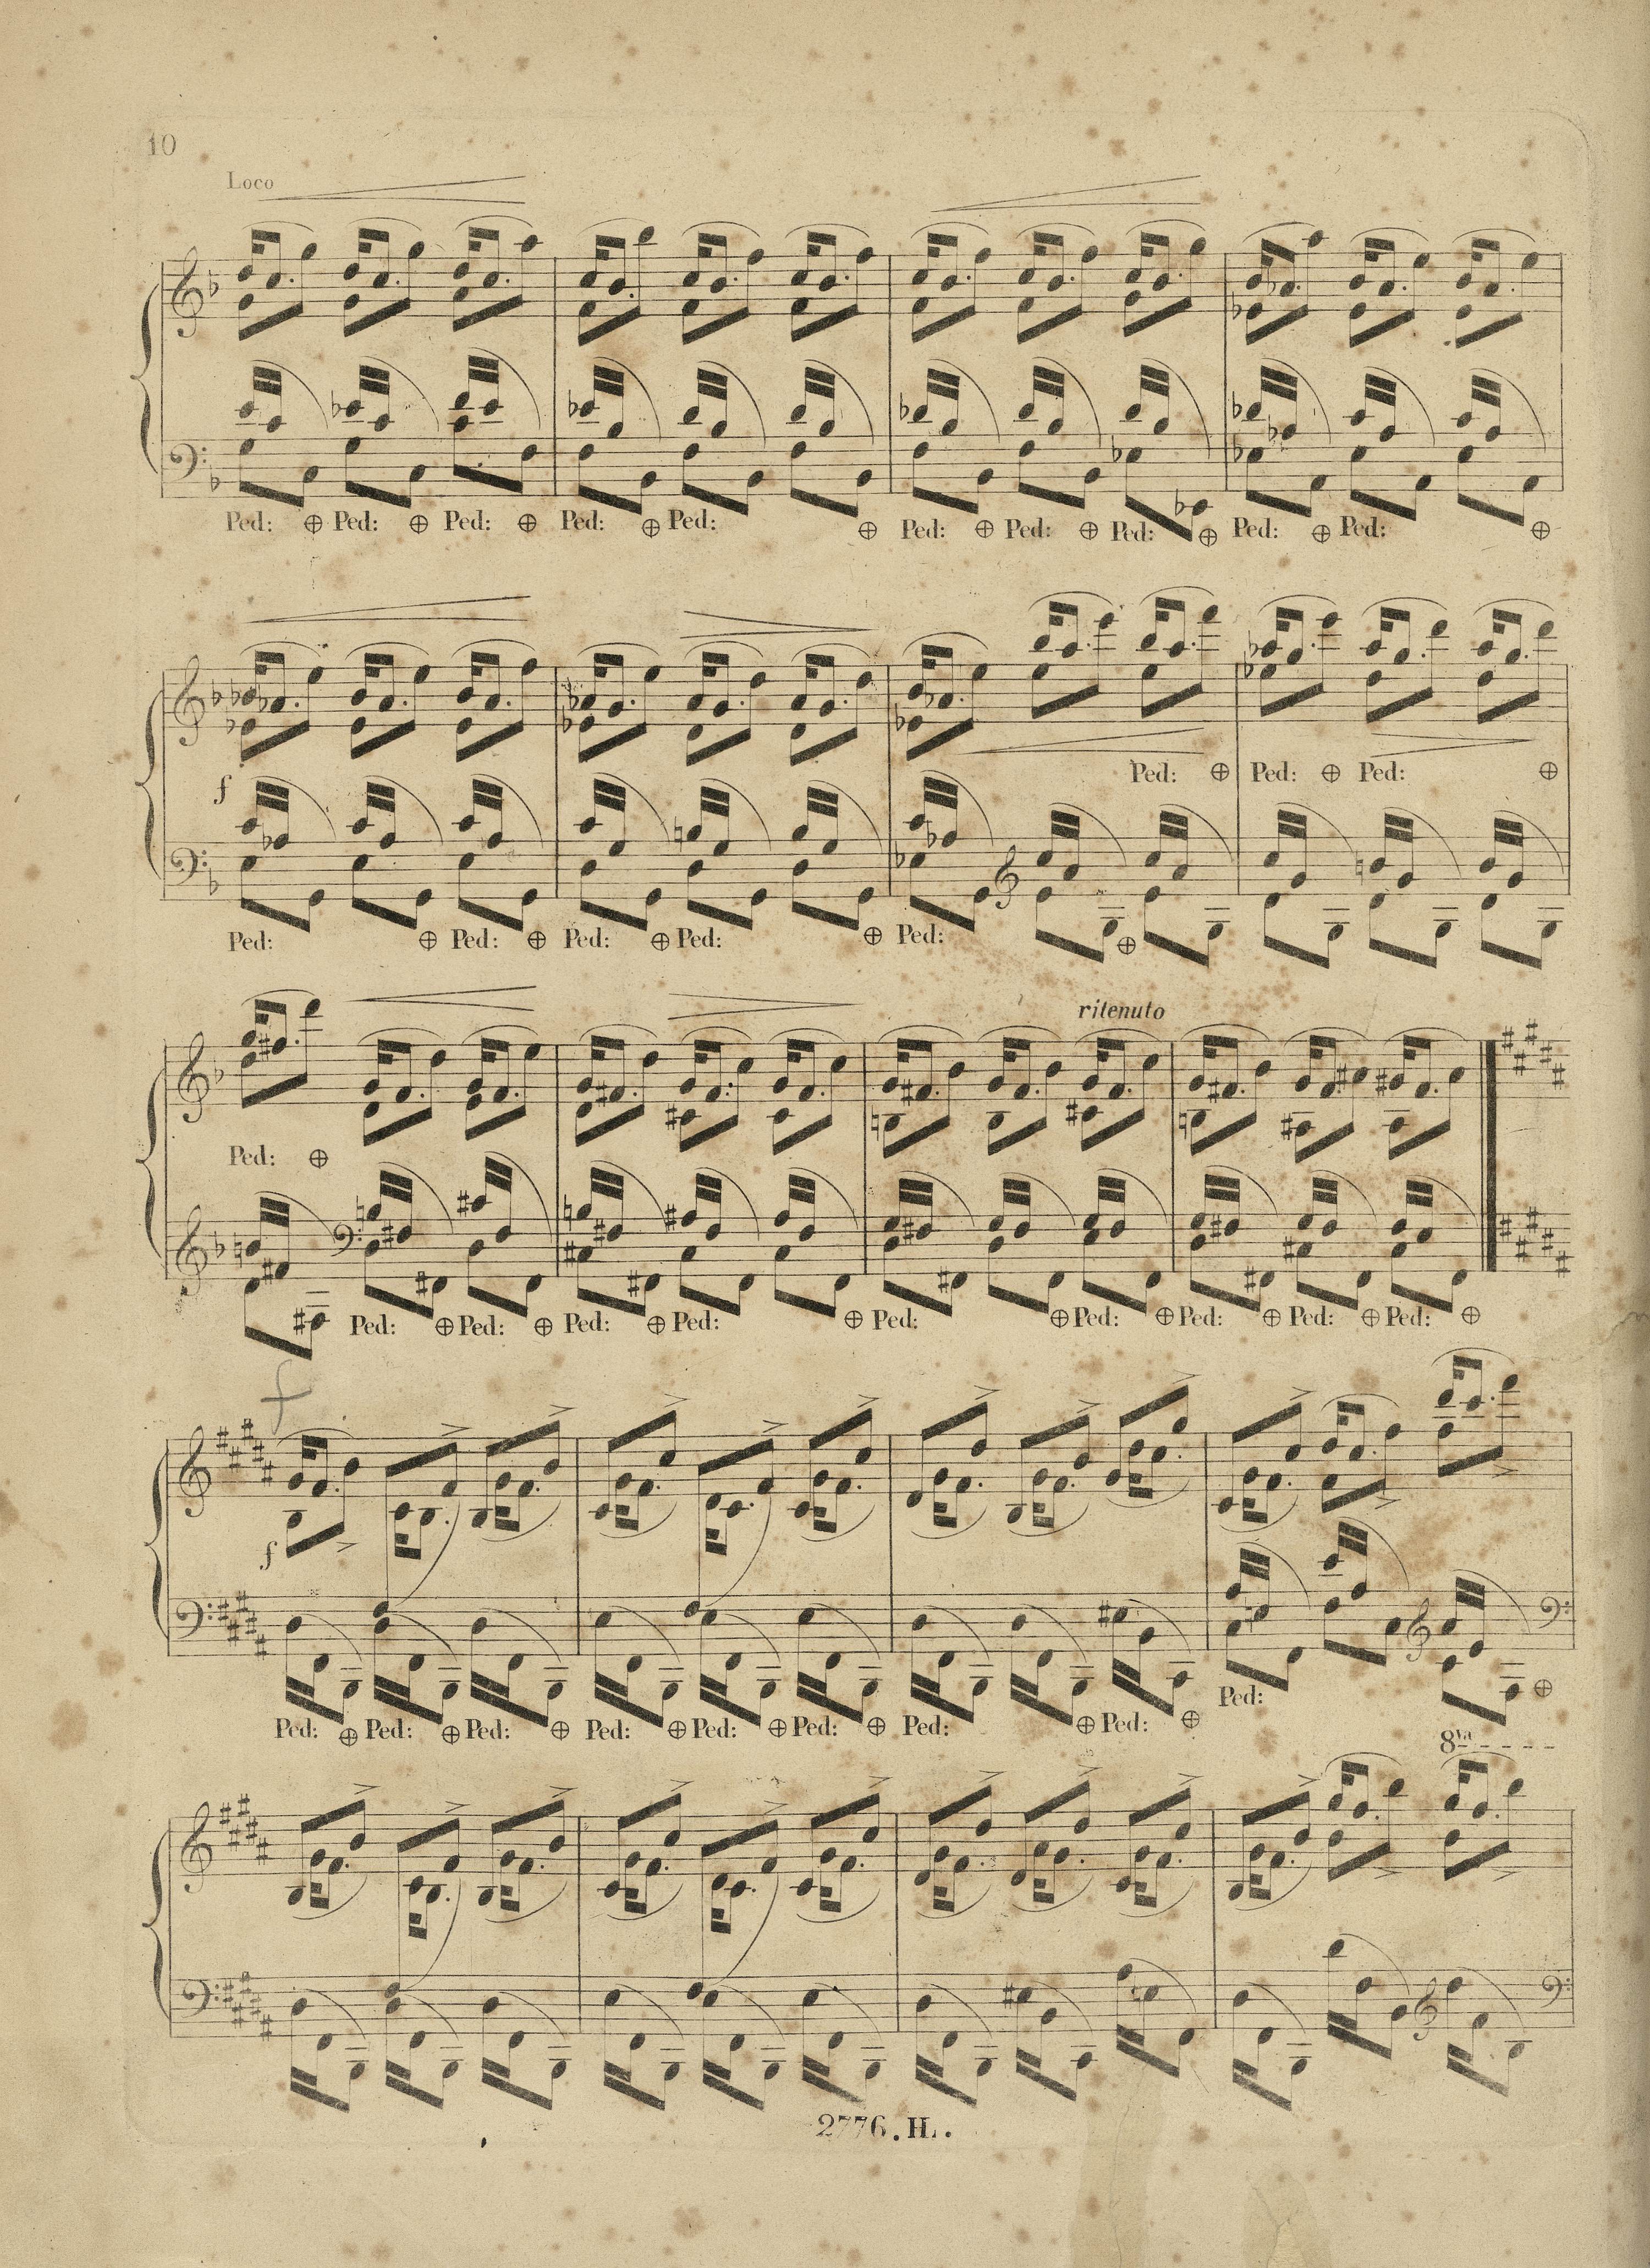 10
Loco
Ped: Ped: Ped: Ped: Ped: Ped: Ped: Ped: Ped: Ped:
f
Ped: Ped: Ped:
Ped: Ped: Ped: Ped: Ped:
ritenuto
Ped:
Ped: Ped: Ped: Ped: Ped: Ped: Ped: Ped: Ped:
f
f
Ped:
Ped: Ped: Ped: Ped: Ped: Ped: Ped: Ped:
8va
2776.H.